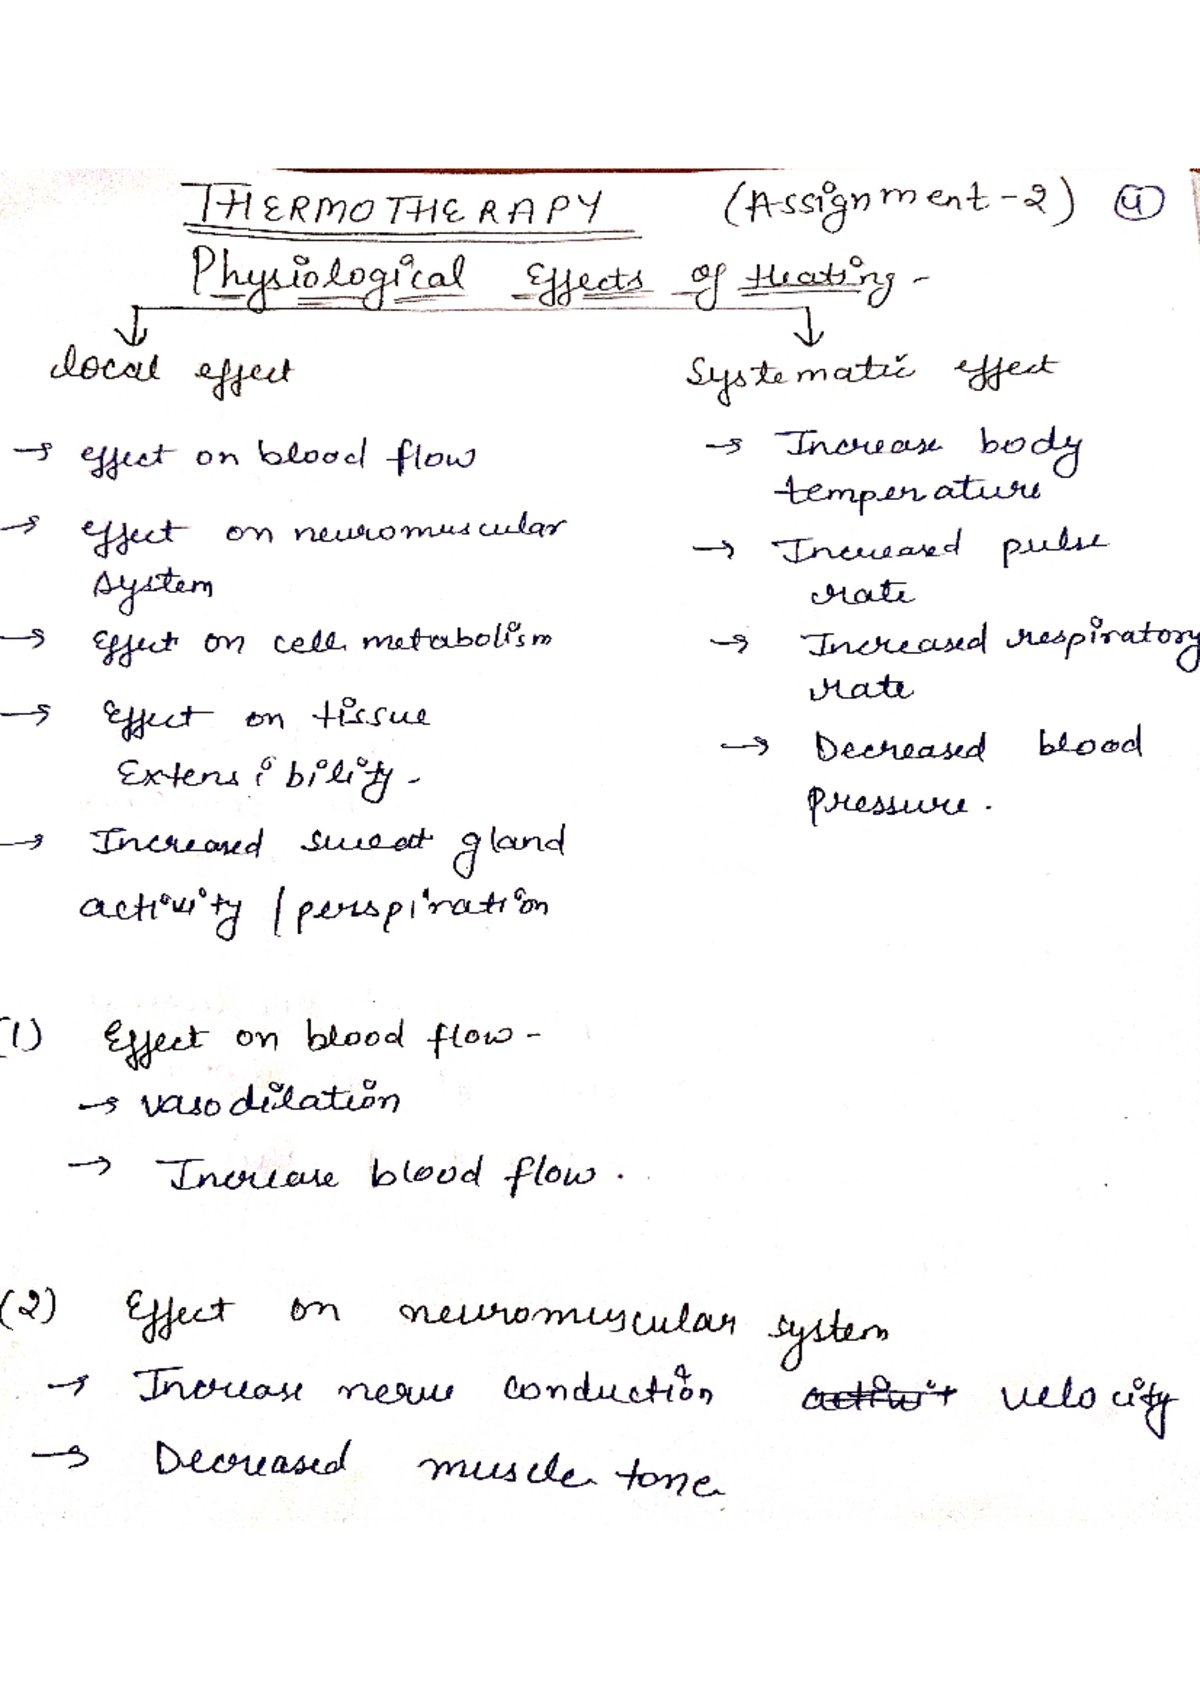 THERMOTHERAPY (Assignment-2) 4
Physiological Effects of Heating -
local effect
→ effect on blood flow
→ effect on neuromuscular
system
→ Effect on cell metabolism
→ Effect on tissue
Extensibility.
→ Increased sweat gland
activity / perspiration
Systematic effect
→ Increase body
temperature
→ Increased pulse
rate
→ Increased respiratory
rate
→ Decreased blood
pressure.
(1) Effect on blood flow -
→ vasodilation
→ Increase blood flow.
(2) Effect on neuromuscular system
→ Increase nerve conduction velocity
→ Decreased muscle tone